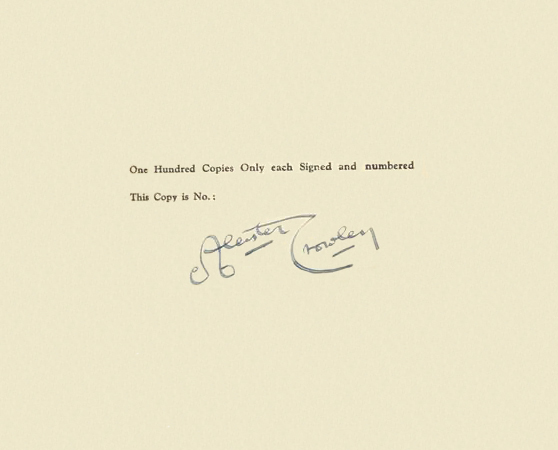 One Hundred Copies Only each Signed and numbered
This Copy is No.:
Aleister Crowley